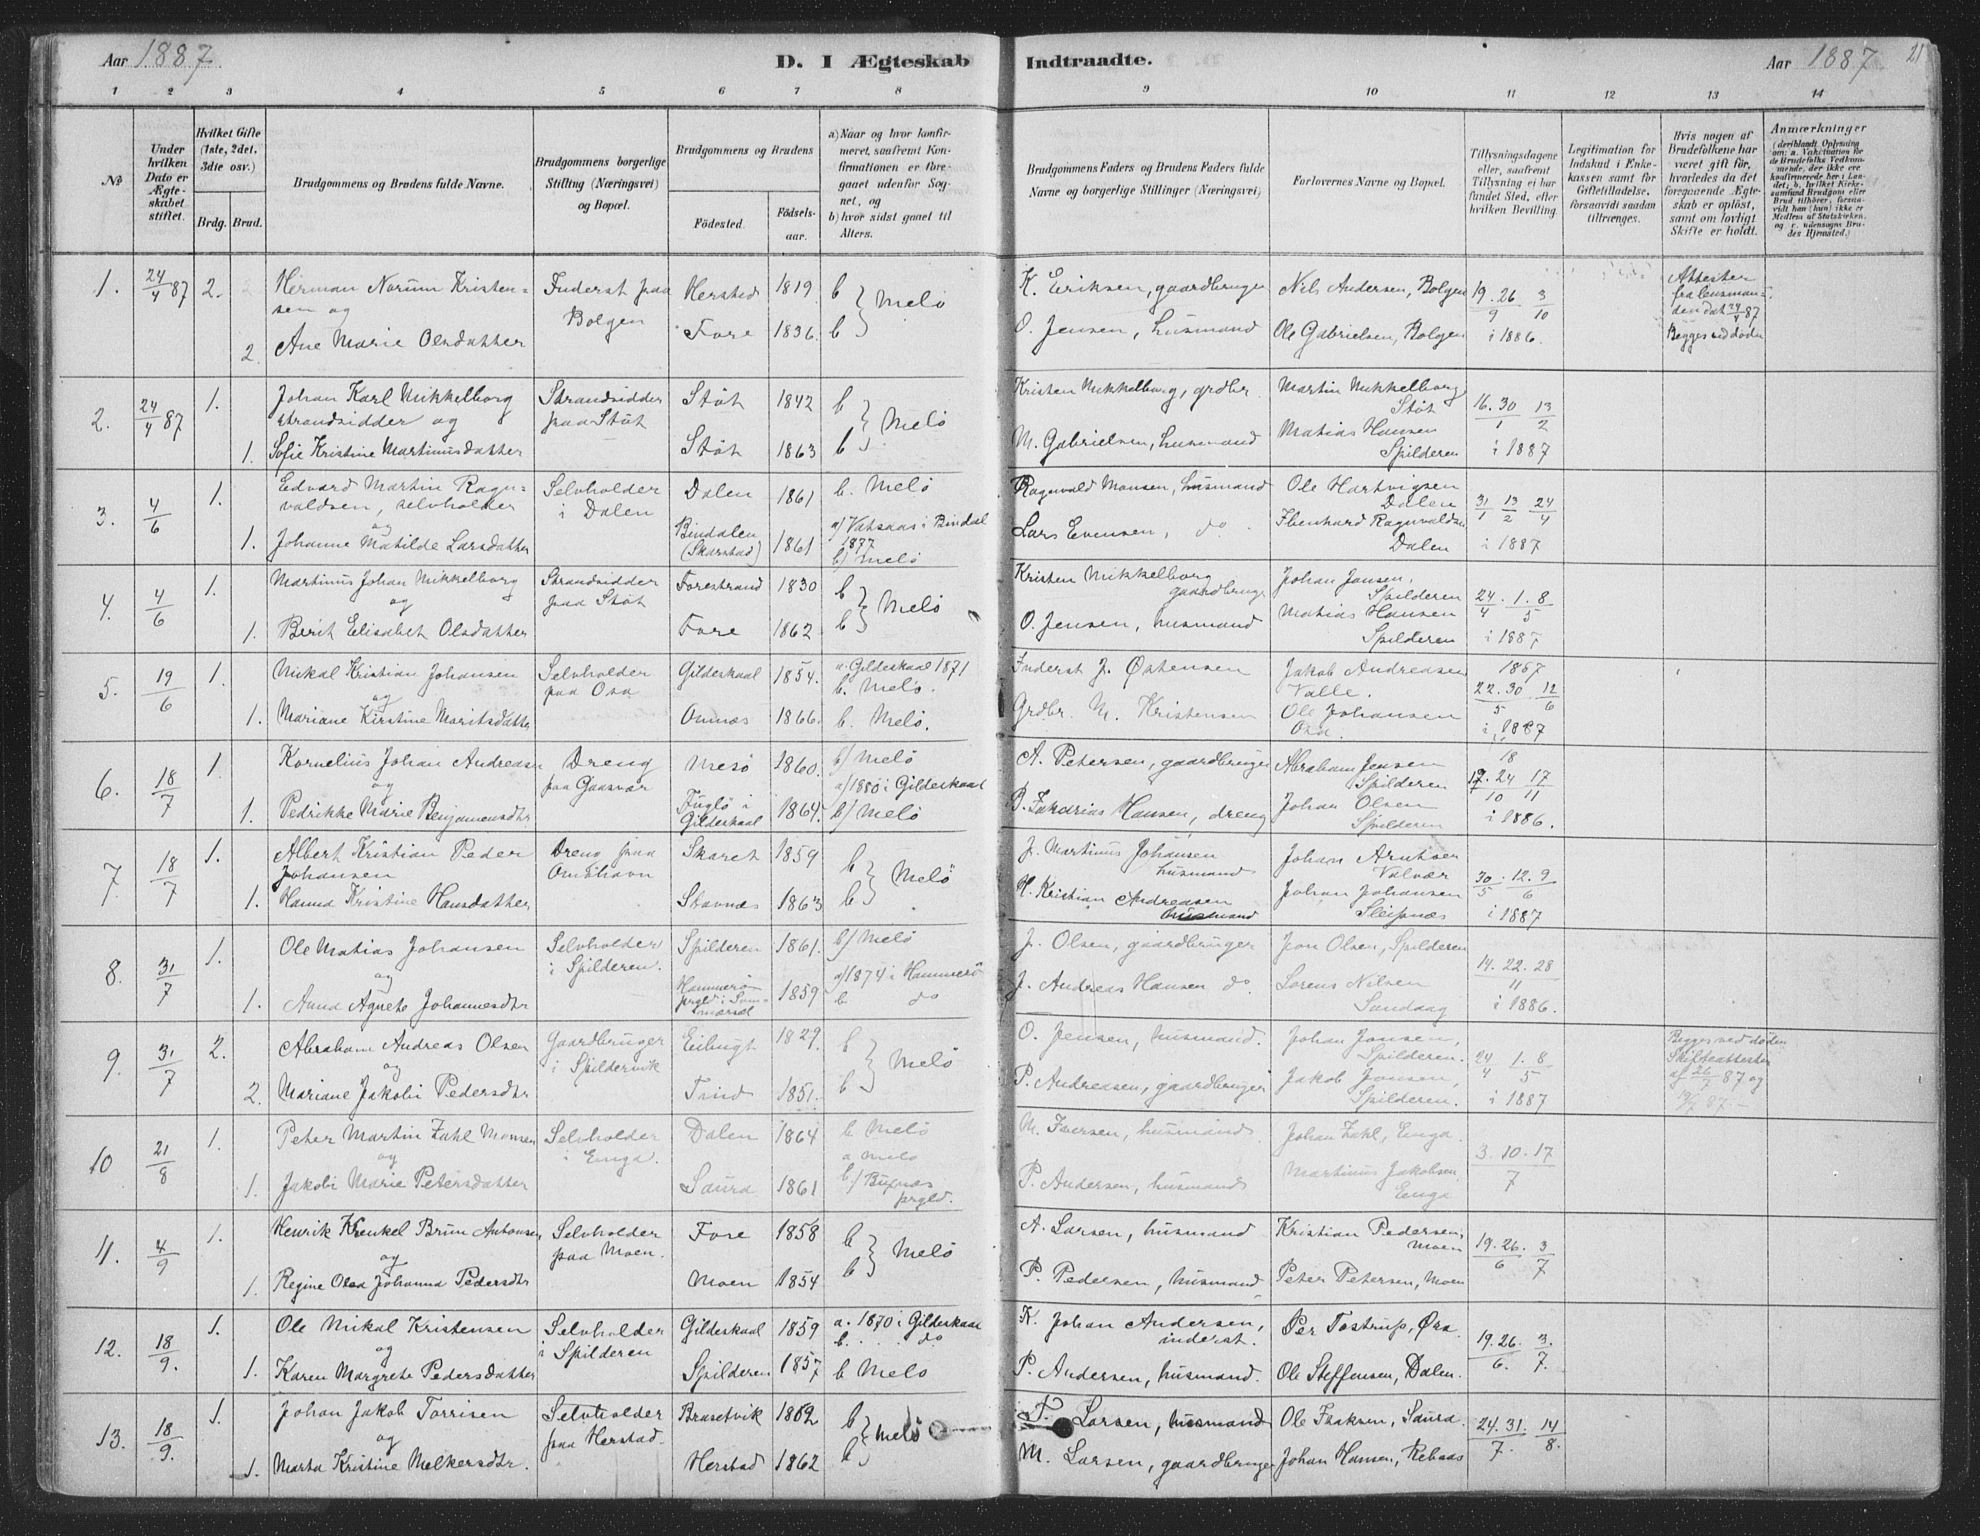 Aar 1887. D. I Ægteskab Indtraadte. Aar 1887. 21
1 2 3 4 5 6 7 8 9 10 11 12 13 14
No.
Under hvilken Dato er Ægteskabet stiftet.
Hvilket Gifte (1ste, 2det, 3die osv.)
Brdg. Brud.
Brudgommens og Brudens fulde Navne.
Brudgommens borgerlige Stilling (Næringsvei) og Bopæl.
Brudgommens og Brudens
Födested. Födsels-aar.
a) Naar og hvor konfirmeret, saafremt Konfirmationen er foregaaet udenfor Sognet, og
b) hvor sidst gaaet til Alters.
Brudgommens Faders og Brudens Faders fulde Navne og borgerlige Stillinger (Næringsvei)
Forlovernes Navne og Bopæl.
Tillysningsdagene eller, saafremt Tillysning ei har fundet Sted, efter hvilken Bevilling.
Legitimation for Indskud i Enkekassen samt for Giftetilladelse, forsaavidt saadan tiltrænges.
Hvis nogen af Brudefolkene har været gift för, hvorledes da det foregaaende Ægteskab er oplöst, samt om lovligt Skifte er holdt.
Anmærkninger
(deriblandt Oplysning om: a. Vakcination for de Brudefolks Vedkommende, der ikke ere konfirmerede her i Landet; b. hvilket Kirkesamfund Brudgom eller Brud tilhörer, forsaavidt han (hun) ikke er Medlem af Statskirken, og c. udensogns Brudes Hjemsted.)
1. 24/4 87 2. Herman Norum Kristen= Inderst paa Hersted 1819 b } Melö K. Eriksen, gaardbruger Nils Andersen, Bolgen 19. 26. 3 Attester
sen og Bolgen 9 10 fra
2. Ane Marie Olsdatter Fore 1836. b O. Jensen, husmand Ole Gabrielsen, Bolgen i 1886. Begges ved döden
2. 24/4 87 1. Johan Karl Mikkelborg Strandsidder Stöt 1842 b } Melö Kristen Mikkelborg, grdbr. Martin Mikkelborg
strandsidder og paa Stöt Stöt 16. 30 13
Matias Hansen 1 2
1. Sofie Kristine Martinusdatter Stöt 1863 b M. Gabrielsen, husmand Spilderen i 1887
3. 4/6 1. Edvard Martin Ragn= Selvholder Dalen 1861 b. Melö Ragnvald Monsen, husmand Ole Hartvigsen
valdsen, selvholder i Dalen Dalen 31 13 24
og Bindalen a/ Vatsaas i Bindal 1 2 4
1. Johanne Matilde Larsdatter (Skarstad) 1861 1877 Lars Evensen, do. Ebenhard Ragnvaldsen
b) Melö Dalen i 1887
4. 4/6 1. Martinus Johan Mikkelborg Strandsidder Forestrand 1830 b } Melö Kristen Mikkelborg Johan Jansen,
og paa Stöt gaardbruger Spilderen 24 . 1. 8
Matias Hansen 4 5
1. Berit Elisabet Olsdatter Fore 1862 b O. Jensen, husmand Spilderen i 1887
5. 19/6 1. Mikal Kristian Johansen Selvholder Gildeskaal 1854. a. Gildeskaal 1871 Inderst J. Östensen Jakob Andreasen
og paa Osa b. Melö. Valle. 22. 30. 12
1. Mariane Kirstine Moritsdatter Omnæs 1866. b. Melö. Grdbr. M. Kristensen Ole Johansen 5 6
Osa. i 1887
6. 18/7 1. Kornelius Johan Andreasen Dreng Mesö 1860. b/ Melö A. Petersen, gaardbruger Abraham Jensen 18
og paa Gaasvær a/ 1880 i Gildeskaal Spilderen 24 17
Fuglö i Johan Olsen 10 11
1. Pedrikke Marie Benjamensdtr Gildeskaal 1864. b/ Melö B. Zakarias Hansen, dreng Spilderen i 1886.
7. 18/7 1. Albert Kristian Peder Dreng paa Skaret 1859 b } Melö J. Martinus Johansen Johan Arntsen
Johansen Omshavn husmand Valvær 30 . 12. 9
1. Hanna Kristine Hansdatter Stavnæs 1863 b H. Kristian Andreasen Johan Johansen 5 6
husmand Sleipnæs i 1887
8. 31/7 1. Ole Matias Johansen Selvholder Spilderen 1861. b/ Melö J. Olsen, gaardbruger Jon Olsen, Spilderen
og i Spilderen. Hammerö a) 1874 i Hammerö 14. 22. 28
1. Anna Agnete Johannesdtr prgld. 1859 b do J. Andreas Hansen do. Sorens Nilsen 11
Sandaag i 1886.
9. 31/7 2. Abraham Andreas Olsen Gaardbruger Eibugt 1829. b } Melö O. Jensen, husmand. Johan Jansen, Begges ved döden
og i Spildervik Spilderen. 24 1. 8 Skifteattester
2. Mariane Jakobi Pedersdtr Tind 1851. b P. Andreasen, gaardbruger Jakob Jansen, 4 5 af 26/7 87 og
Spilderen. i 1887 87 —
10 21/8 1. Peter Martin Zahl Monsen Selvholder Dalen 1864 b Melö M. Iversen, husmand Johan Zahl, Enga.
og i Enga. a Melö 3. 10. 17
1. Jakobi Marie Petersdatter Saura 1861 b/ Buxnæs P. Andersen, husmand Martinus Jakobsen, 7
prgld. Enga
11. 4/9 1. Henrik Krenkel Brun Antonsen Selvholder Fore 1858 b } Melö A. Larsen, husmand Kristian Pedersen,
og paa Moen. Moen 19. 26. 3
1. Regine Olea Johanna Pedersdtr Moen 1854 b P. Pedersen, husmand Peter Petersen, Moen 6 7
12. 18/9. 1. Ole Mikal Kristensen Selvholder Gildeskaal 1859 a. 1870 i Gildeskaal K. Johan Andersen, Per Tostrup, Osa.
og i Spilderen b. do inderst. 19. 26. 3.
1. Karen Margrete Pedersdatter Spilderen 1857 b Melö P. Andersen, husmand. Ole Steffensen, Dalen. 6. 7.
13. 18/9. 1. Johan Jakob Torrisen Selvholder Brasetvik 1862 b } Melö T. Larsen, husmand Ole Isaksen, Saura. 24. 31. 14
og paa Herstad. 7. 8.
1. Marta Kristine Melkersdtr. Herstad 1862 b M. Larsen, gaardbruger Johan Hansen, Rebaas